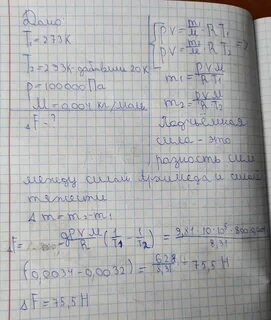 Дано
T₁ = 273К
T₂ = 293К
p = 100000 Па
M = 0,004 кг/моль
ΔF = ?
pV = m₁/M RT₁ =>
pV = m₂/M RT₂
m₁ = pVM/RT₁
m₂ = pVM/RT₂
Подъёмная
сила - это
разность сил
между силой Архимеда и силой
тяжести
Δm = m₂ - m₁
ΔF = gpVM/R (1/T₁ - 1/T₂) =
(0,0034 - 0,0032) = 628/8,31 = 75,5 Н
ΔF = 75,5 Н